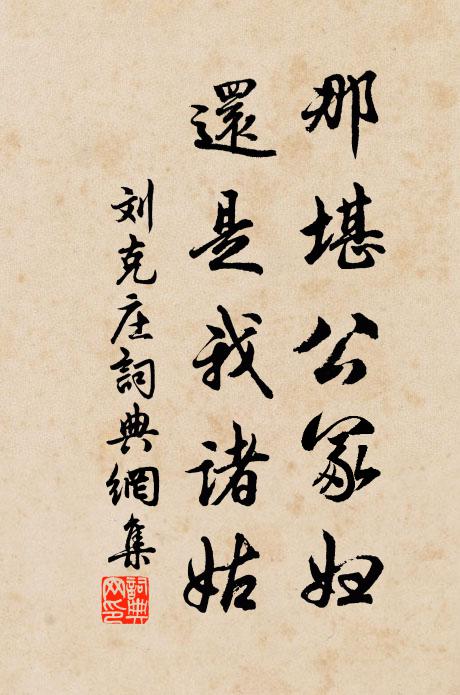 那堪公冢妇
還是我诸姑
刘克庄詞典網集
詞典网印